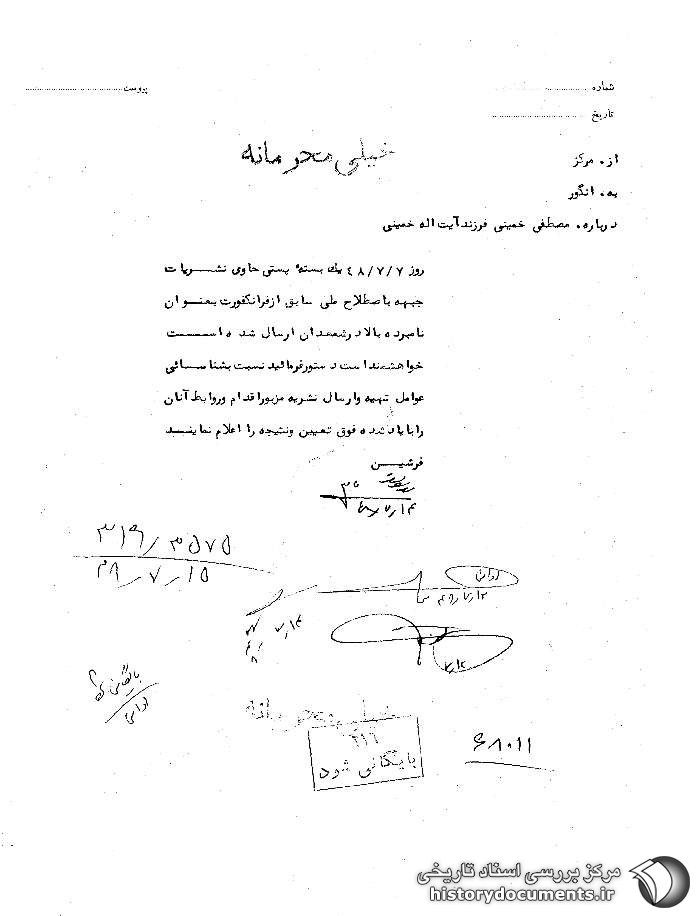 شماره
پیوست
تاریخ
خیلی محرمانه
از، مرکز
به، انگور
درباره، مصطفی خمینی فرزند آیت اله خمینی
روز ۴۸/۷/۷ یك بستهٔ پستی حاوی نشریات
جبهه باصطلاح ملی سابق ازفرانکفورت بعنوان
نامبرده بالا درشمعدان ارسال شده است
خواهشمند است دستورفرمائید نسبت بشناسائی
عوامل تهیه وارسال نشریه مزبوراقدام وروابط آنان
را بایادشده فوق تعیین ونتیجه را اعلام نمایند
فرشین
۴۸/۷/۱۴
۳۱۶/۳۵۷۵
۴۸/۷/۱۵
۷/۱۴
۷/۱۲
خیلی محرمانه
۳۱۶
بایگانی شود
۶۸۰۱۱
مرکز بررسی اسناد تاریخی
historydocuments.ir